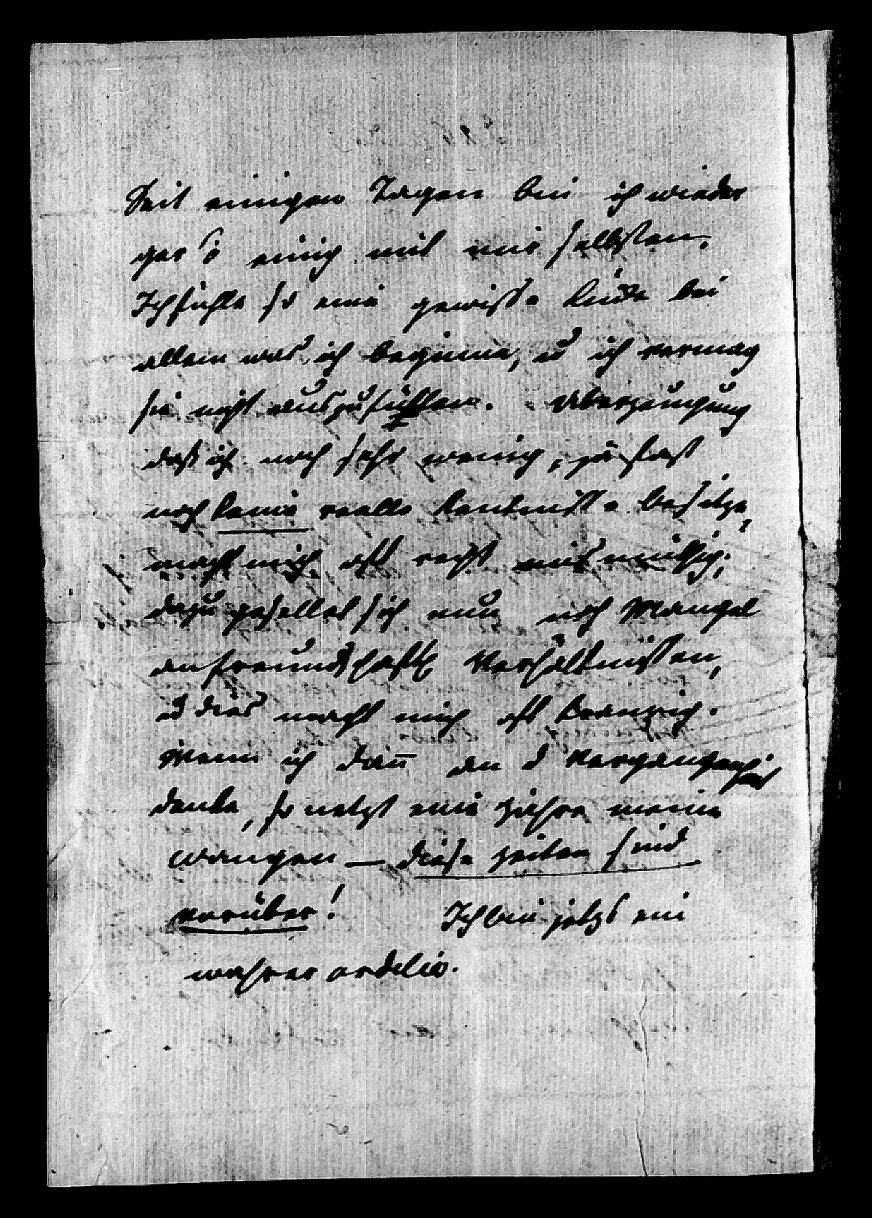 Seit einigen Tagen bin ich wieder
gar so einig mit mir selbsten.
Ich fühle so eine gewisse Leere bei
allem was ich beginne, u ich vermag
sie nicht auszufüllen. Uberzeugung
daß ich noch sehr wenig, ja fast
noch keine reelle Kentnisse besitze,
macht mich oft recht mismuthig;
dazu gesellet sich nun noch Mangel
an freundschaftl Verhältnissen,
u dies macht mich oft
Wenn ich dan̄ an d Vergangenheit
denke, so netzt eine Zähre meine
Wangen — diese Zeiten sind
vorüber! Ich bin jetzt ein
wahrer ordelio.